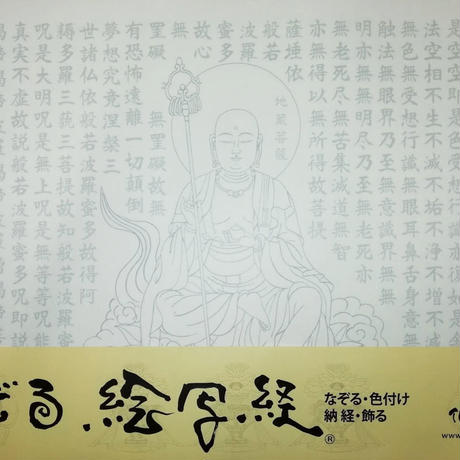 是空空即是色受想行識亦復如
法空相不生不滅不垢不浄不増不
無色無受想行識無眼耳鼻舌身意
触法無眼界乃至無意識界無無
明亦無無明尽乃至無老死亦
無老死尽無苦集滅道無智
亦無得以無所得故菩提
薩埵依
般若
波羅
蜜多
故心
無
罣礙 無罣礙故無
有恐怖遠離一切顛倒
夢想究竟涅槃三
世諸仏依般若波羅蜜多故得阿
耨多羅三藐三菩提故知般若波羅蜜
呪是大明呪是無上呪是無等等呪能
真実不虚故説般若波羅蜜多呪即説
地蔵菩薩
ぞる 絵写経®
なぞる・色付け
納経・飾る
www.